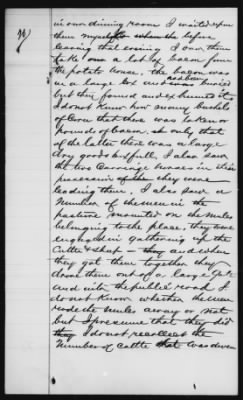 76)
in own dining room I waited upon
them myself when before
leaving that evening I saw them
take out a lot of bacon from
the potato house, the bacon was
in a large box and was buried
but they found and exhumed it
I do not know how many bushels
of Corn that there was taken or
pounds of bacon only that
of the latter there was a large
dry goods box full, I also saw
the two Carriage horses in their
possession after they were
leading them, I also saw a
number of the men in the
pasture mounted on the mules
belonging to the place, they were
engaged in gathering up the
Cattle & sheep — they and when
they got them together they
drove them out of a large gate
and into the public road I
do not know whether the men
rode the mules away or not
but I presume that they did
they I do not recollect the
number of cattle that was driven